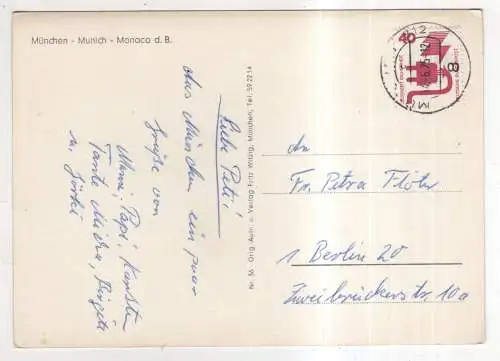 München - Munich - Monaco d. B.
Liebe Peti!
Aus München ein paar
Grüße von
Mami, Papi, Karsten
Tante Midra, Birgitt
u. Görki
Nr. 36 Orig. Aufn. u. Verlag Fritz Witzig, München, Tel. 59 22 14
40
8
An
Fr. Petra Flöter
1 Berlin 20
Zweibrückerstr. 10a